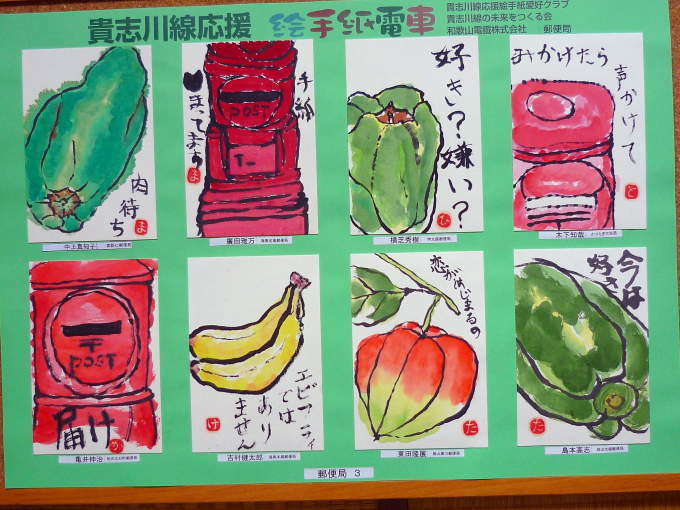 貴志川線応援 絵手紙電車
貴志川線応援絵手紙愛好クラブ
貴志川線の未来をつくる会
和歌山電鐵株式会社 郵便局
肉待ち
ま
手紙
まってます
POST
〒
ま
好き?嫌い?
ひ
みかけたら
声かけて
と
廣田雅万
横芝秀樹
木下知哉
〒
POST
届け
め
エビフライ
では
あり
ません
け
恋がはじまるの
た
今は
好き
た
亀井伸治
吉村健太郎
東田隆展
島本憲志
郵便局 3